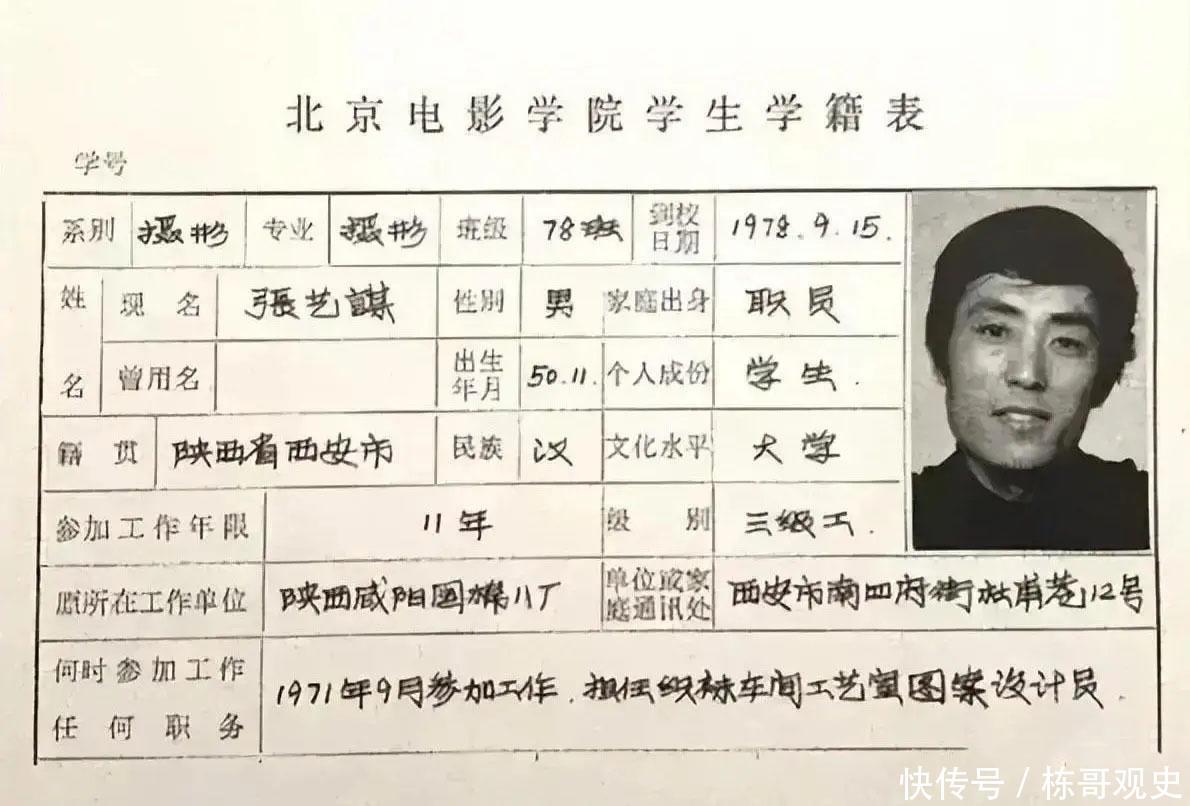 北京电影学院学生学籍表
学号
系别 摄影 专业 摄影 班级 78班 到校日期 1978.9.15.
姓名 现名 張艺謀 性别 男 家庭出身 职员
曾用名 出生年月 50.11. 个人成份 学生.
籍贯 陕西省西安市 民族 汉 文化水平 大学
参加工作年限 11年 级别 三级工.
原所在工作单位 陕西咸阳国棉八厂 单位或家庭通讯处 西安市南四府街杜甫巷12号
何时参加工作任何职务 1971年9月参加工作.担任织袜车间工艺室图案设计员.
快传号 / 栋哥观史